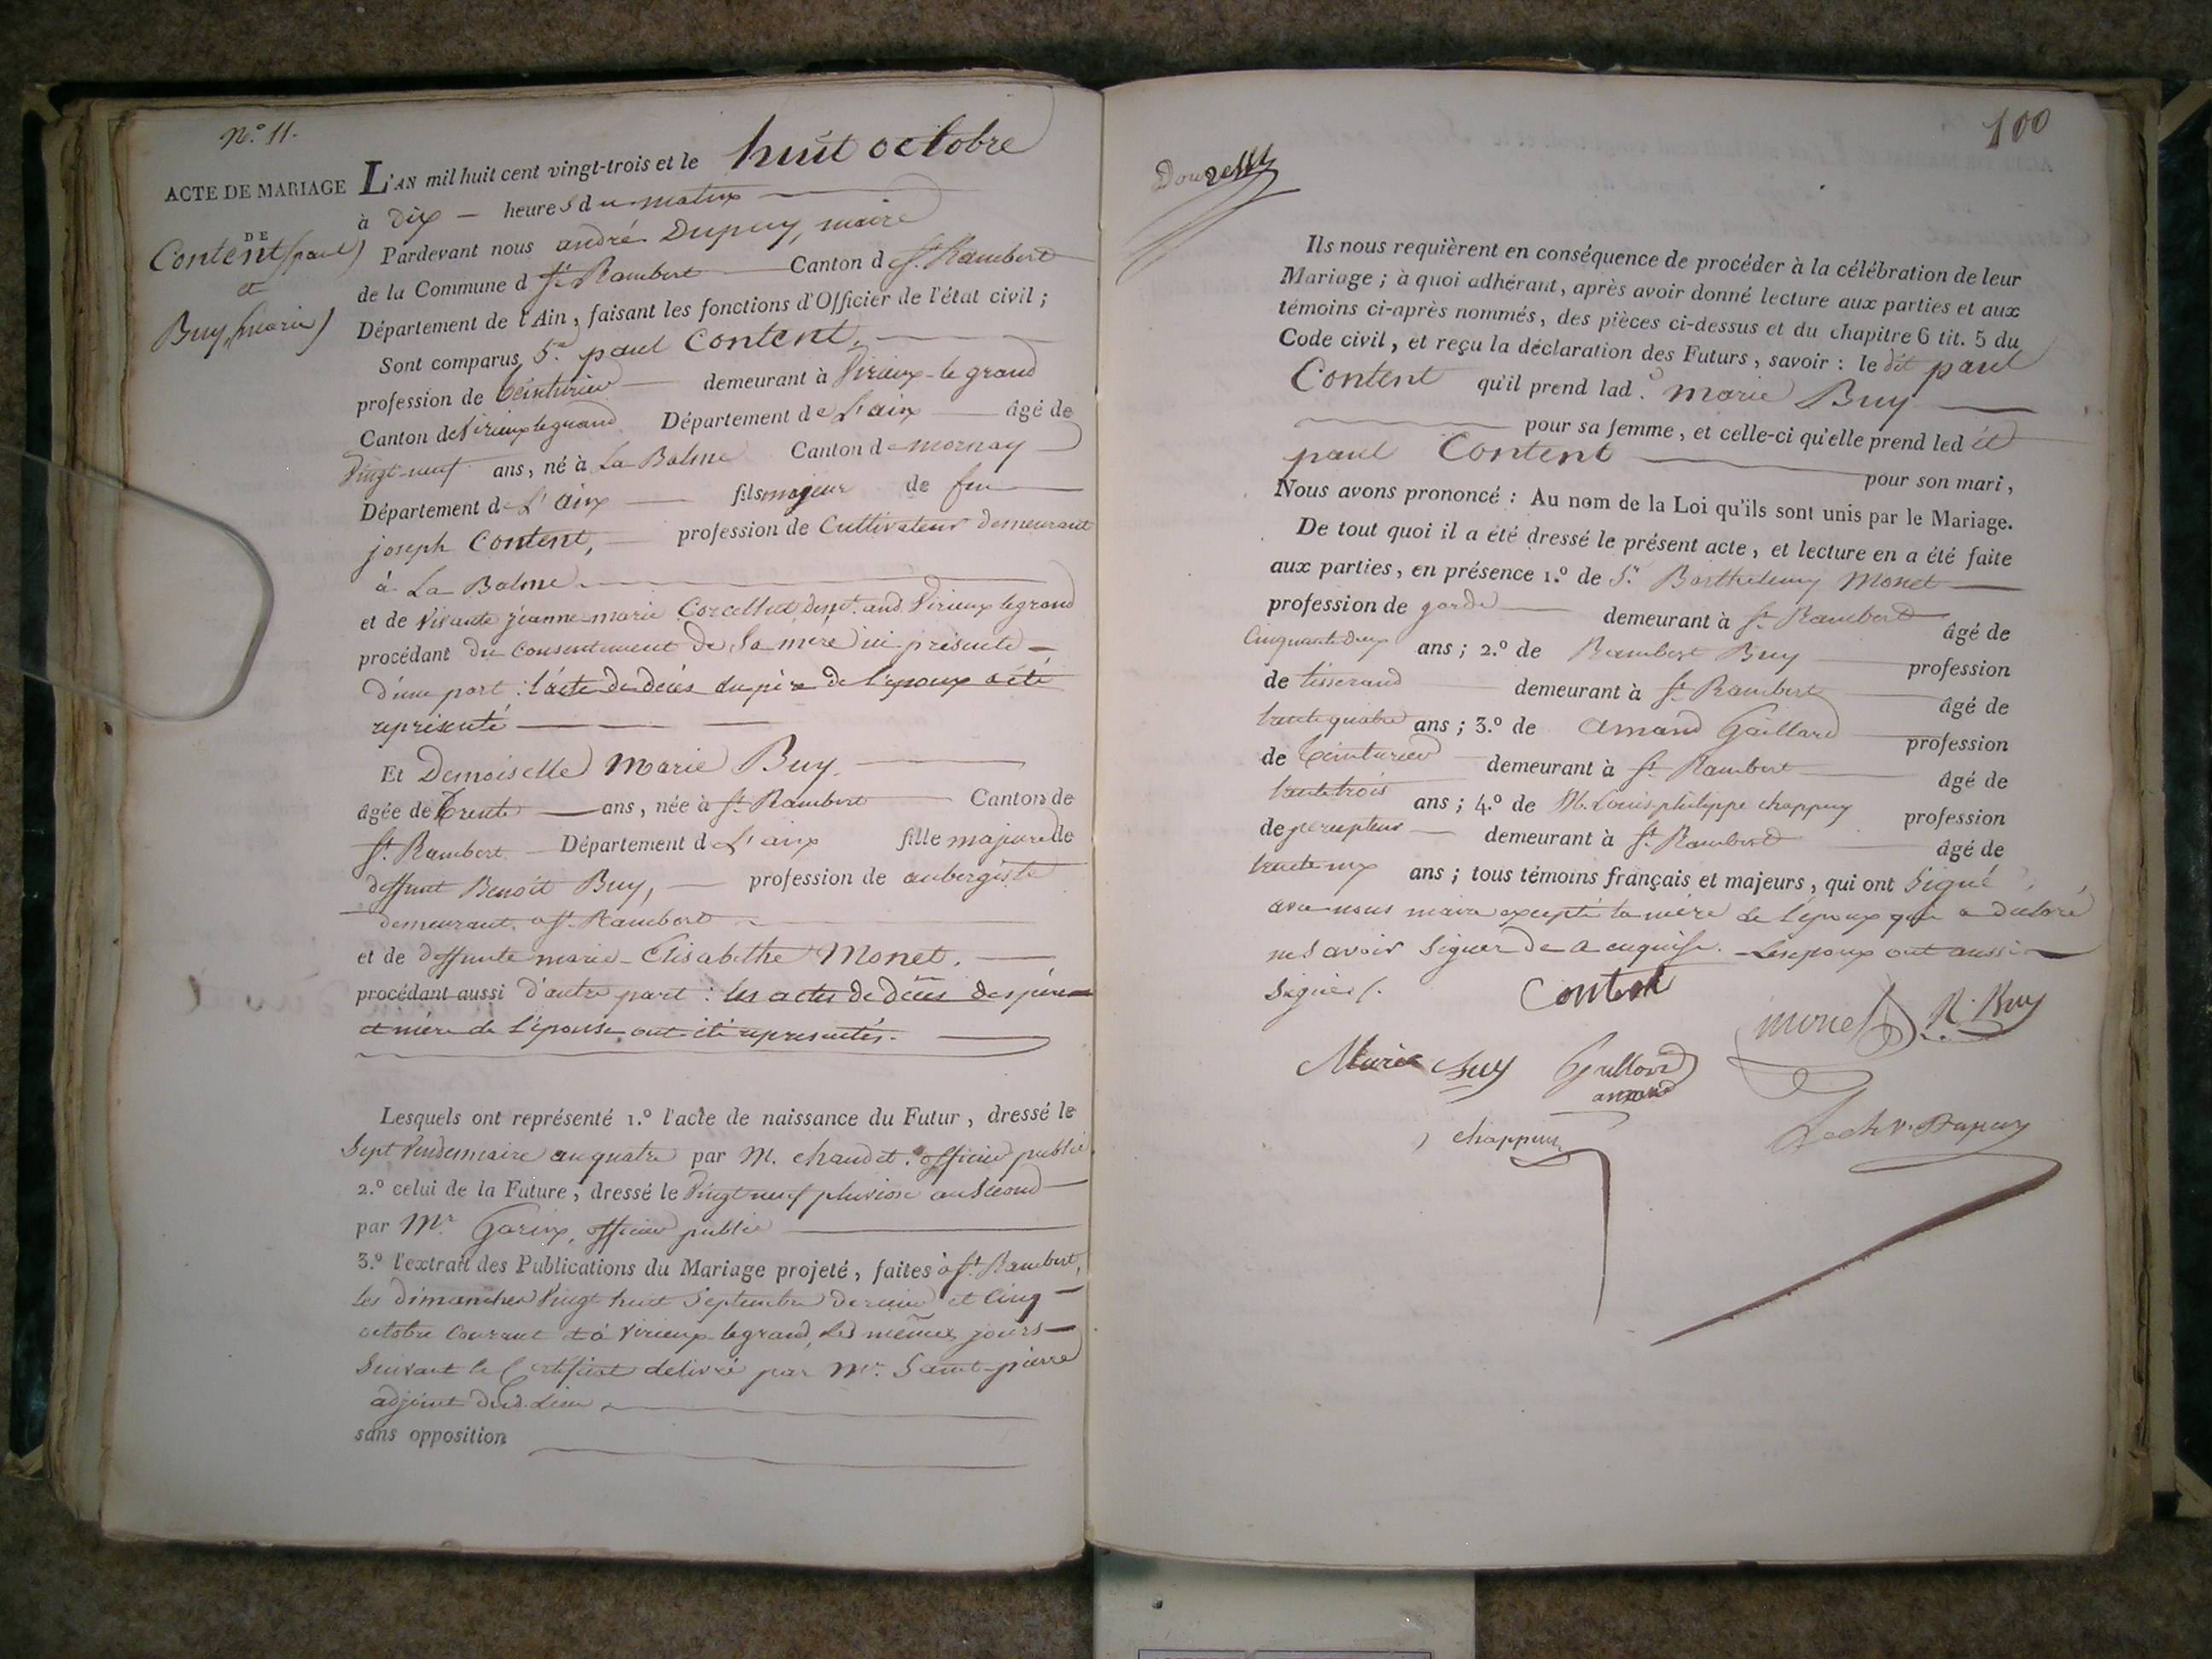 N.° 11.
ACTE DE MARIAGE
DE
Content (paul)
et
Buy, (marie)
L'AN mil huit cent vingt-trois et le huit octobre
à dix — heures du matin
Pardevant nous andré Dupuy, maire
de la Commune d St Rambert Canton d St. Rambert
Département de l'Ain, faisant les fonctions d'Officier de l'état civil ;
Sont comparus Sr. paul Content,
profession de teinturier demeurant à Virieux-le grand
Canton de Virieux le grand Département de L'ain âgé de
Vingt-neuf ans, né à La Balme Canton de mornay
Département de L'ain fils majeur de feu
joseph Content, profession de Cultivateur demeurant
à La Balme
et de Vivante jeanne-marie Corcellut demt. aud. Virieux le grand
procédant du Consentement de Sa mère ici présente
d'une part : l'acte de décès du père de l'époux a été
représenté
Et Demoiselle Marie Buy.
âgée de trente ans, née à St. Rambert Canton de
St. Rambert Département de L'ain fille majeure de
deffunt Benoît Buy, profession de aubergiste
demeurant à St. Rambert
et de deffunte marie-Elisabethe Monet.
procédant aussi d'autre part : les actes de décès des père
et mère de l'épouse ont été représentés.
Lesquels ont représenté 1.° l'acte de naissance du Futur, dressé le
Sept Vendemiaire an quatre par M. chaudet. officier public
2.° celui de la Future, dressé le Vingt neuf pluviose an Second
par Mr. Garin, officier public
3.° l'extrait des Publications du Mariage projeté, faites à St. Rambert,
les dimanches Vingt huit Septembre dernier et Cinq
octobre Courant et à Virieux le grand, les mêmes jours
Suivant le Certificat delivré par Mr. Saint-pierre
adjoint dud. Lieu
sans opposition
100
Ils nous requièrent en conséquence de procéder à la célébration de leur
Mariage ; à quoi adhérant, après avoir donné lecture aux parties et aux
témoins ci-après nommés, des pièces ci-dessus et du chapitre 6 tit. 5 du
Code civil, et reçu la déclaration des Futurs, savoir : le dit paul
Content qu'il prend lad. e marie Buy
pour sa femme, et celle-ci qu'elle prend led it
paul Content pour son mari,
Nous avons prononcé : Au nom de la Loi qu'ils sont unis par le Mariage.
De tout quoi il a été dressé le présent acte, et lecture en a été faite
aux parties, en présence 1.° de Sr. Barthelemy Monet
profession de garde demeurant à St. Rambert âgé de
Cinquante deux ans ; 2.° de Rambert Buy profession
de tisserand demeurant à St. Rambert âgé de
trente quatre ans ; 3.° de Amand Gaillard profession
de teinturier demeurant à St. Rambert âgé de
trente trois ans ; 4.° de M. Louis-philippe chappuy profession
de percepteur demeurant à St. Rambert âgé de
ans ; tous témoins français et majeurs, qui ont Signé
avec nous maire excepté la mère de l'époux qui a declaré
ne Savoir Signer de ce enquise. Les epoux ont aussi
Signés /.
Content
monet
R. Buy
Marie buy
Gaillard
amand
chappuy
Dupuy